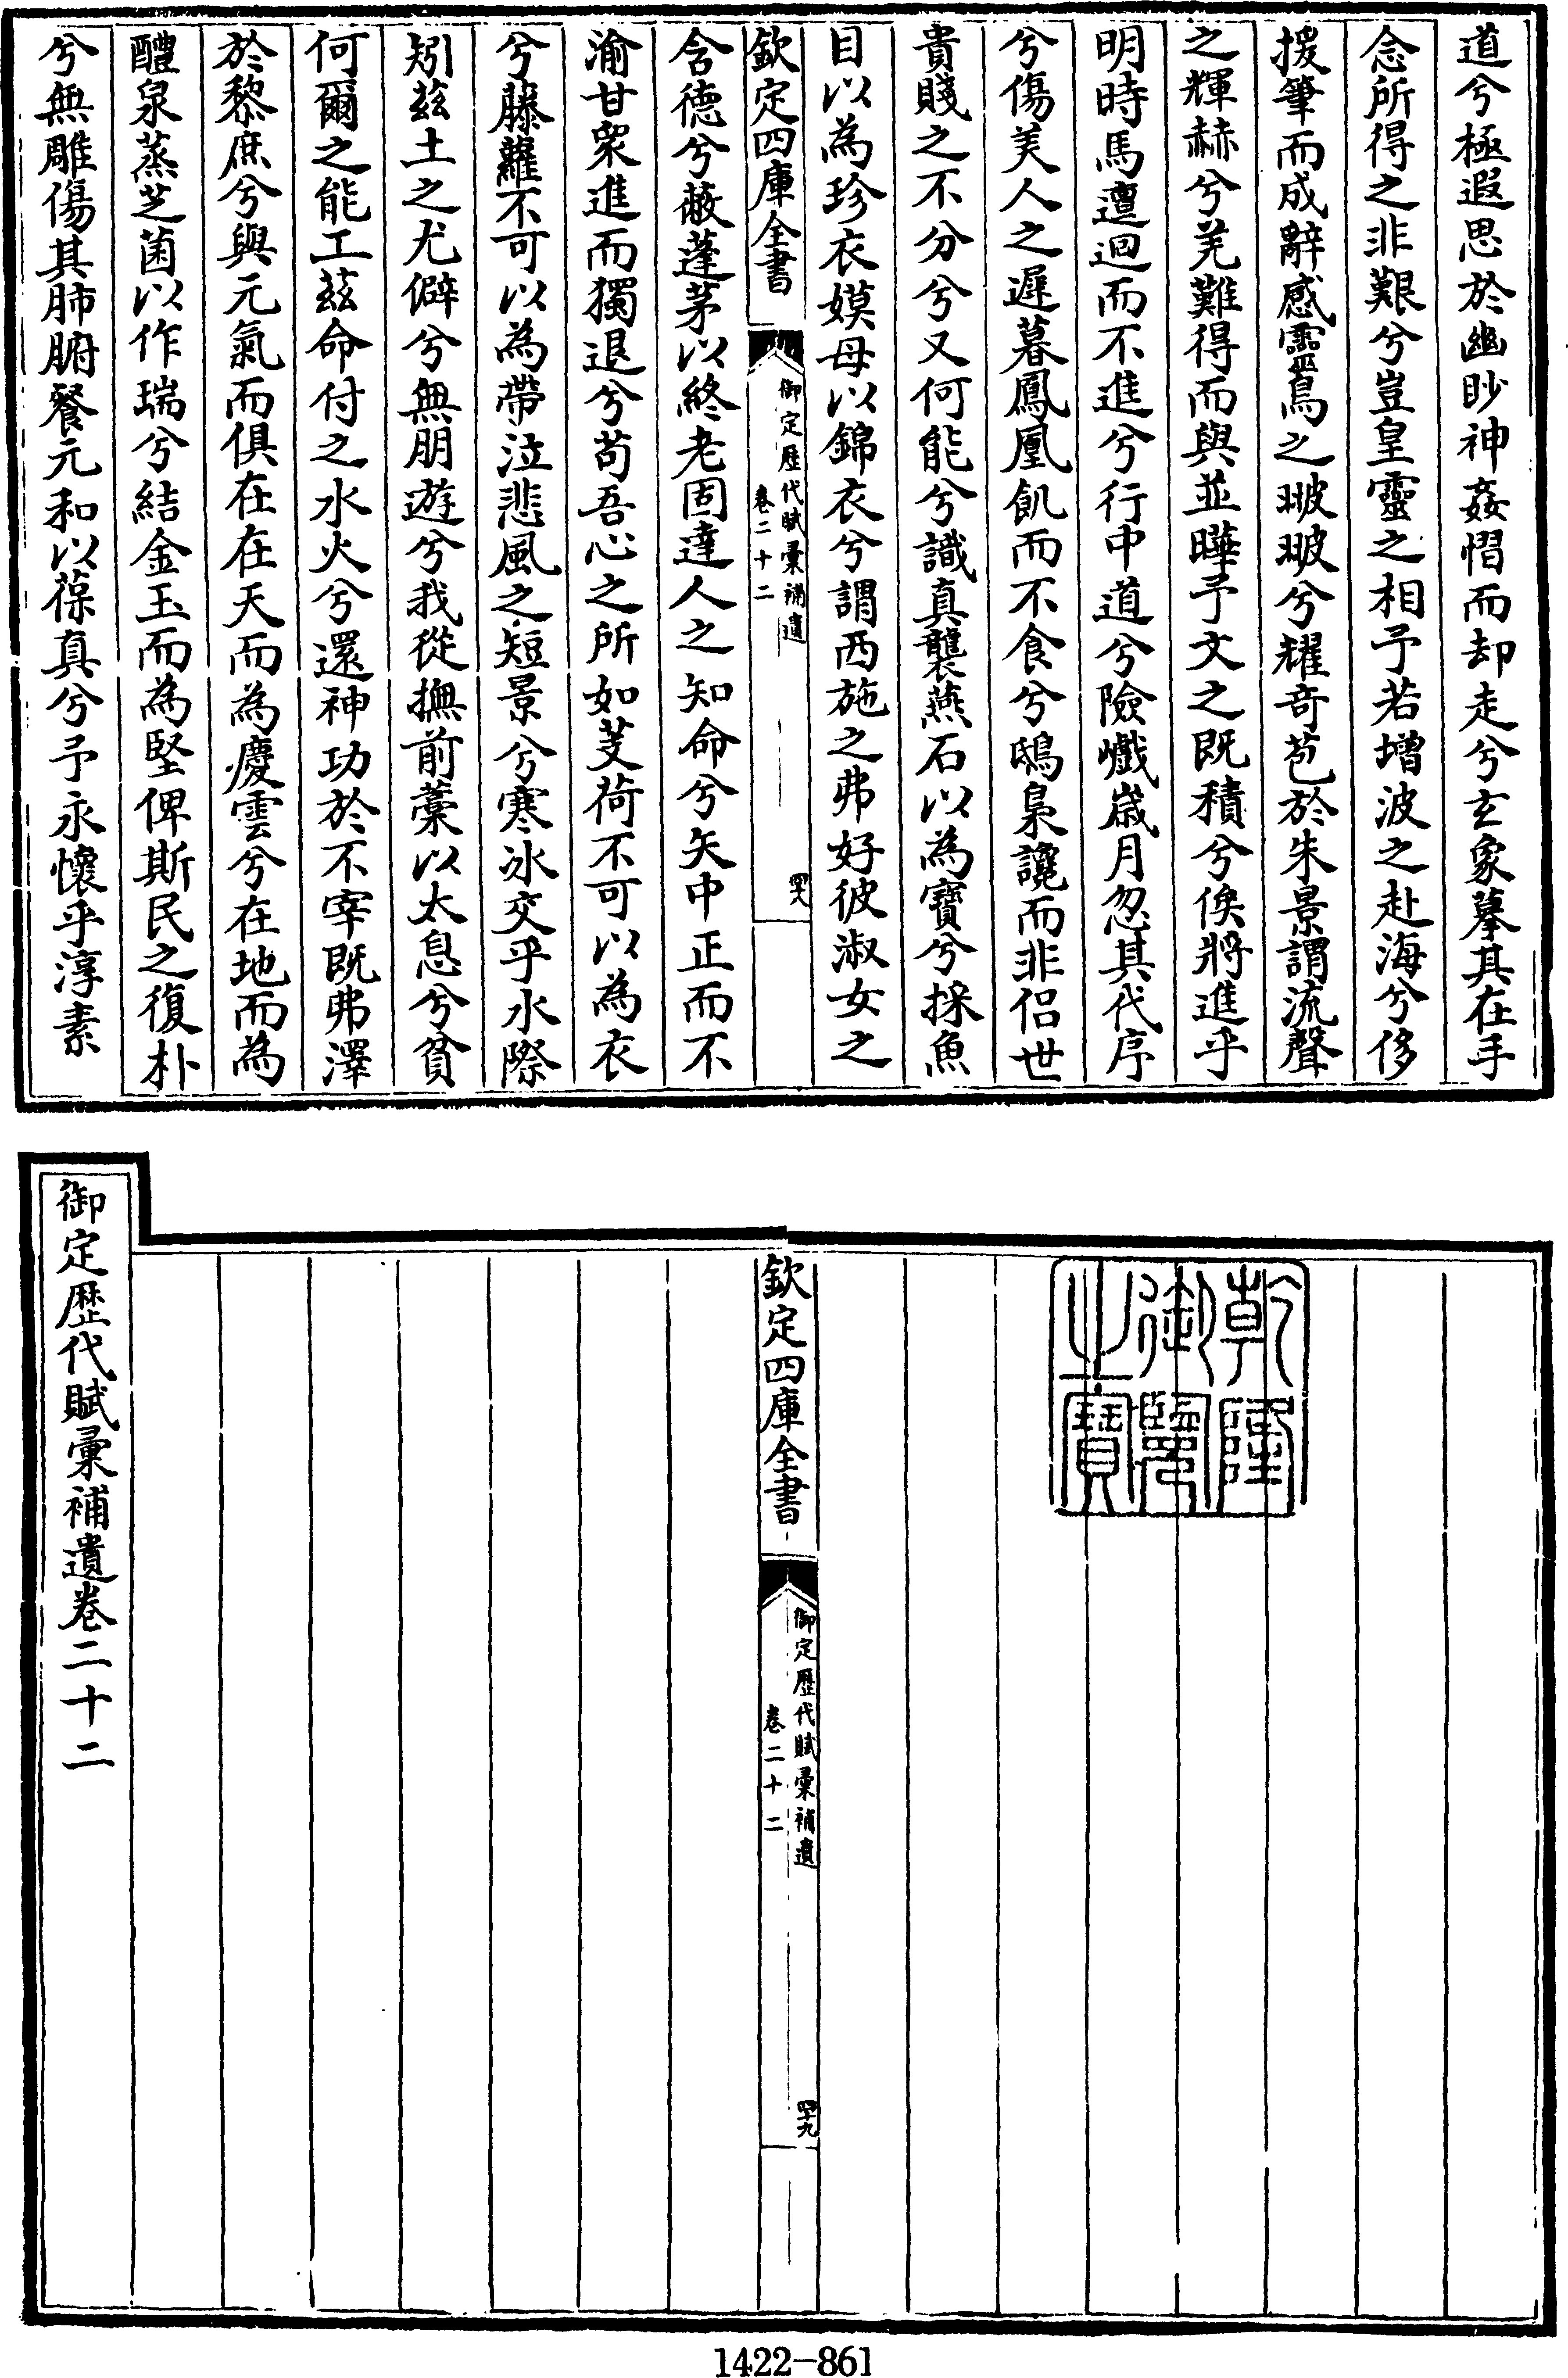 道兮極遐思於幽眇神姦慴而却走兮玄象摹其在手
念所得之非艱兮豈皇靈之相予若增波之赴海兮侈
援筆而成辭感靈鳥之㿱㿱兮耀奇苞於朱景謂流聲
之輝赫兮羌難得而與並曄予文之既積兮俟將進乎
明時馬邅迴而不進兮行中道兮險巇歲月忽其代序
兮傷美人之遲暮鳳凰飢而不食兮鴟梟讒而非侶世
貴賤之不分兮又何能兮識真襲燕石以為寶兮採魚
目以為珍衣嫫母以錦衣兮謂西施之弗好彼淑女之
欽定四庫全書
御定歷代賦彙補遺
卷二十二
四十八
含德兮蔽蓬茅以終老固達人之知命兮矢中正而不
渝甘衆進而獨退兮苟吾心之所如芰荷不可以為衣
兮藤蘿不可以為帶泣悲風之短景兮寒冰交乎水際
矧茲土之尤僻兮無朋遊兮我從撫前藁以太息兮貧
何爾之能工茲命付之水火兮還神功於不宰既弗澤
於黎庶兮與元氣而俱在在天而為慶雲兮在地而為
醴泉蒸芝菌以作瑞兮結金玉而為堅俾斯民之復朴
兮無雕傷其肺腑餐元和以葆真兮予永懷乎淳素
乾隆
御覽
之寶
欽定四庫全書
御定歷代賦彙補遺
卷二十二
四十九
御定歷代賦彙補遺卷二十二
1422-861